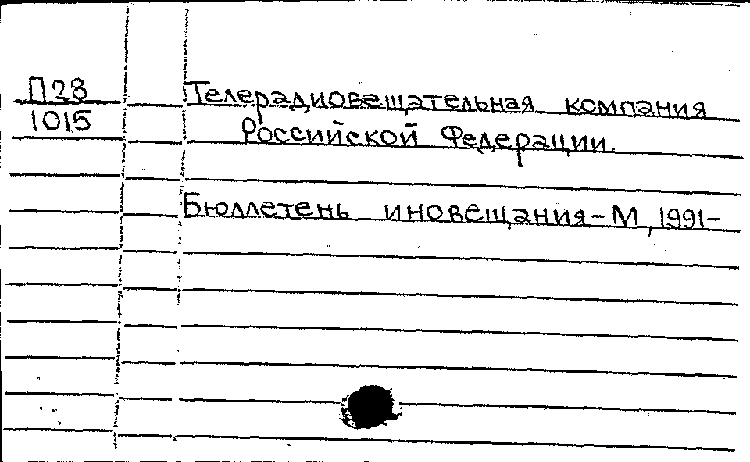 П28
1015
Телерадиовещательная компания
Российской Федерации.
Бюллетень иновещания-М, 1991-